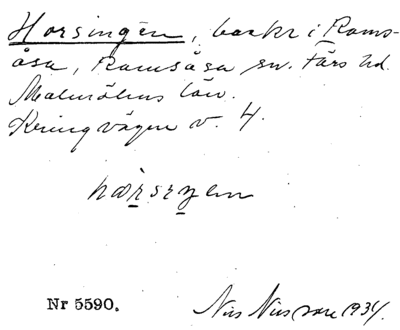 Horsingen, backe i Rams-
åsa, Ramsåsa sn. Färs hd.
Malmöhus län.
Kring vägen v. 4.
hørsɪŋen
Nr 5590.
Nils Nilsson 1934.